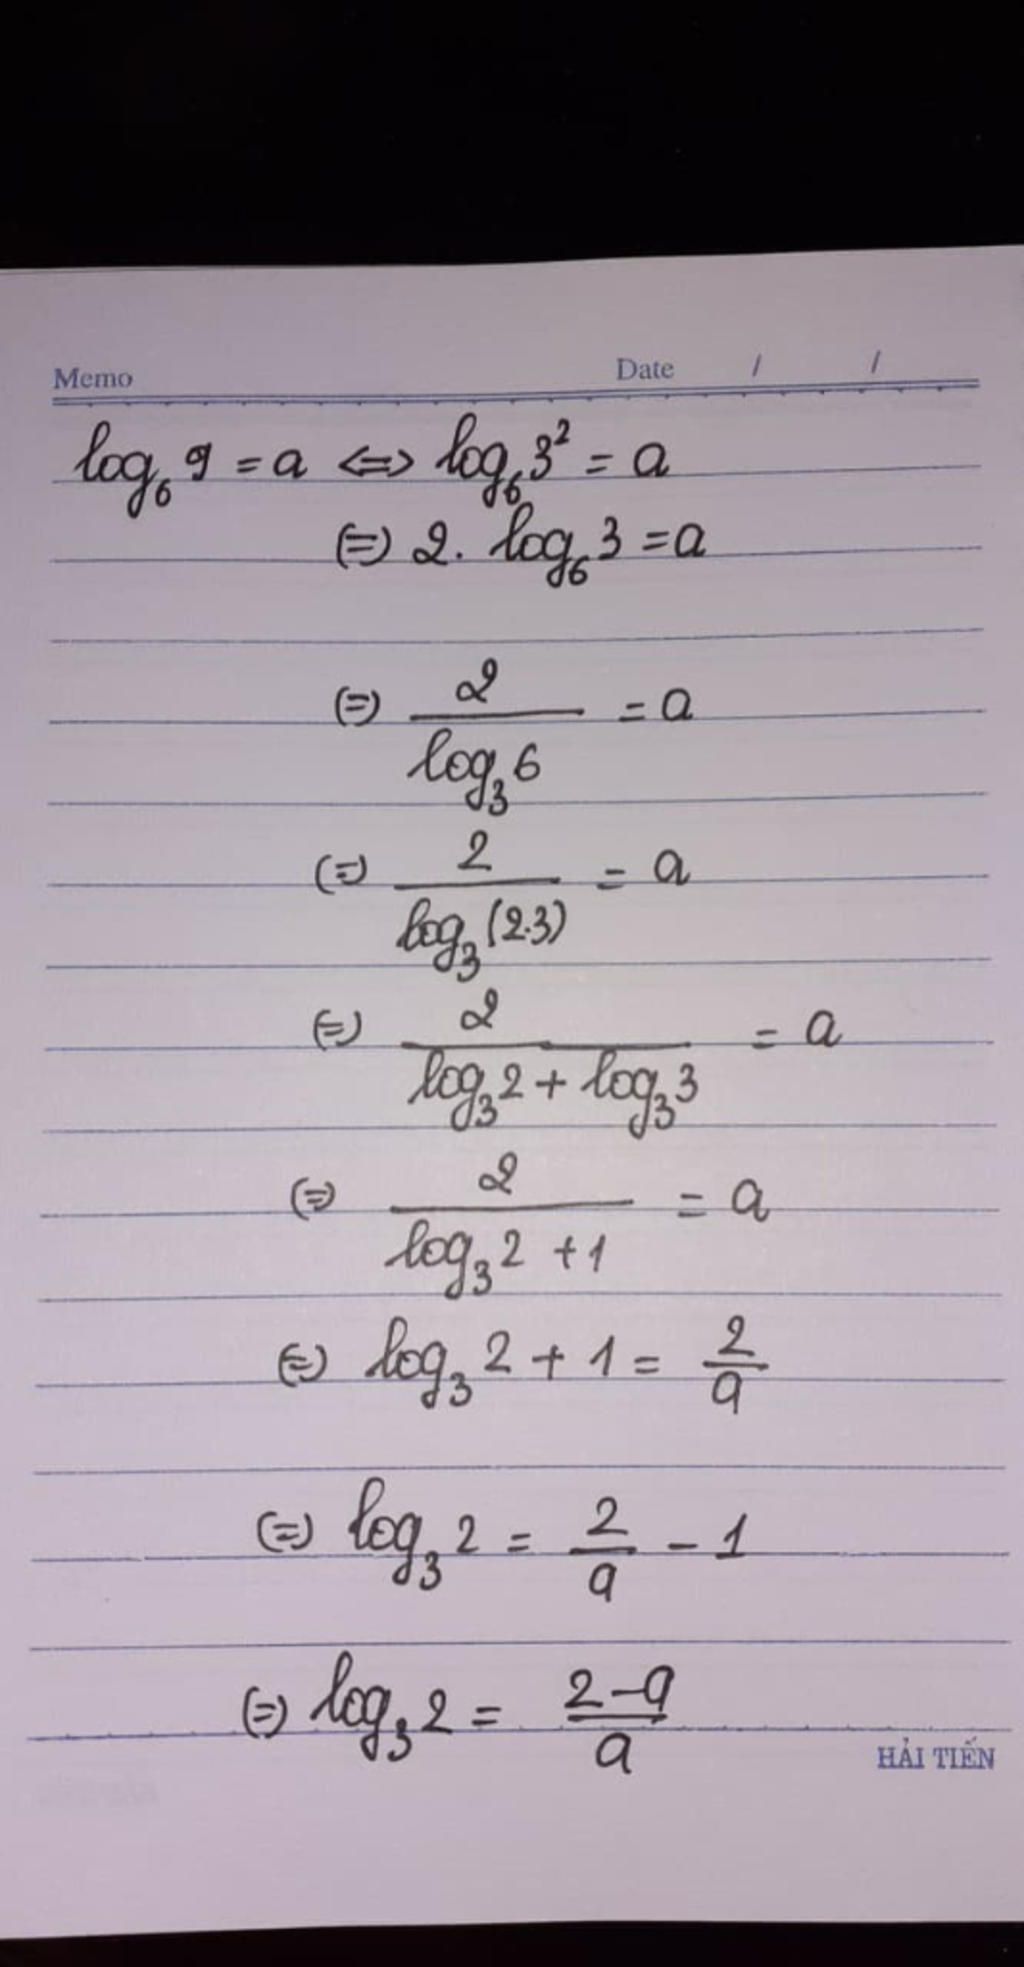 Memo Date / /
log₆ 9 = a <=> log₆ 3² = a
(=) 2. log₆ 3 = a
(=) 2 / log₃ 6 = a
(=) 2 / log₃ (2.3) = a
(=) 2 / log₃ 2 + log₃ 3 = a
(=) 2 / log₃ 2 + 1 = a
(=) log₃ 2 + 1 = 2 / a
(=) log₃ 2 = 2 / a - 1
(=) log₃ 2 = 2 - a / a
HẢI TIẾN